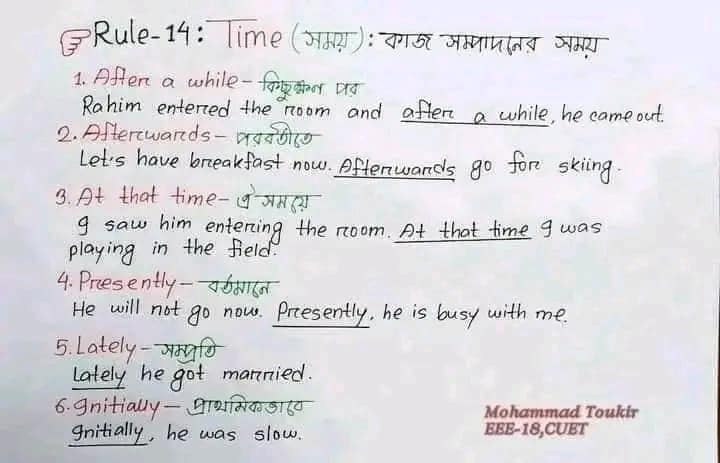 Rule-14: Time (সময়): কাজ সম্পাদনের সময়
1. After a while - কিছুক্ষণ পর
Rahim entered the room and after a while, he came out.
2. Afterwards - পরবর্তীতে
Let's have breakfast now. Afterwards go for skiing.
3. At that time - ঐ সময়ে
I saw him entering the room. At that time I was
playing in the field.
4. Presently - বর্তমানে
He will not go now. Presently, he is busy with me.
5. Lately - সম্প্রতি
Lately he got married.
6. Initially - প্রাথমিকভাবে
Initially, he was slow.
Mohammad Toukir
EEE-18,CUET